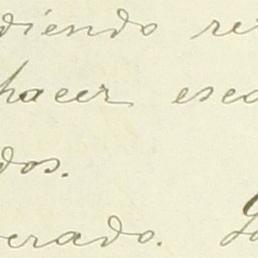 diendo re
hacer esc
dos.
erado.